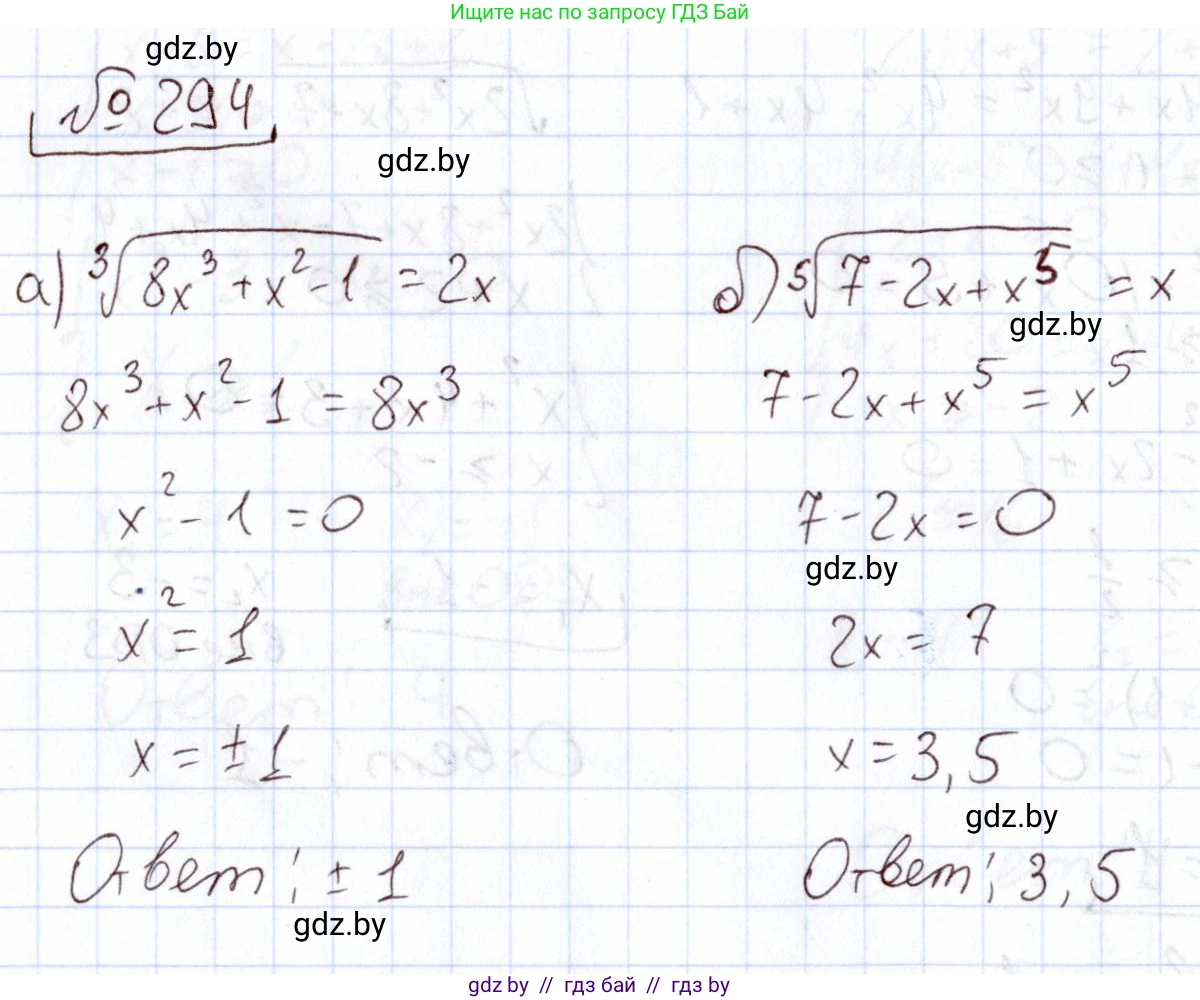 Ищите нас по запросу ГДЗ Бай
gdz.by
№ 294
gdz.by
а) ∛(8x³ + x² - 1) = 2x
8x³ + x² - 1 = 8x³
x² - 1 = 0
x² = 1
x = ±1
Ответ: ±1
gdz.by
б) ⁵√(7 - 2x + x⁵) = x
gdz.by
7 - 2x + x⁵ = x⁵
7 - 2x = 0
gdz.by
2x = 7
x = 3,5
gdz.by
Ответ: 3,5
gdz by // гдз бай // гдз by